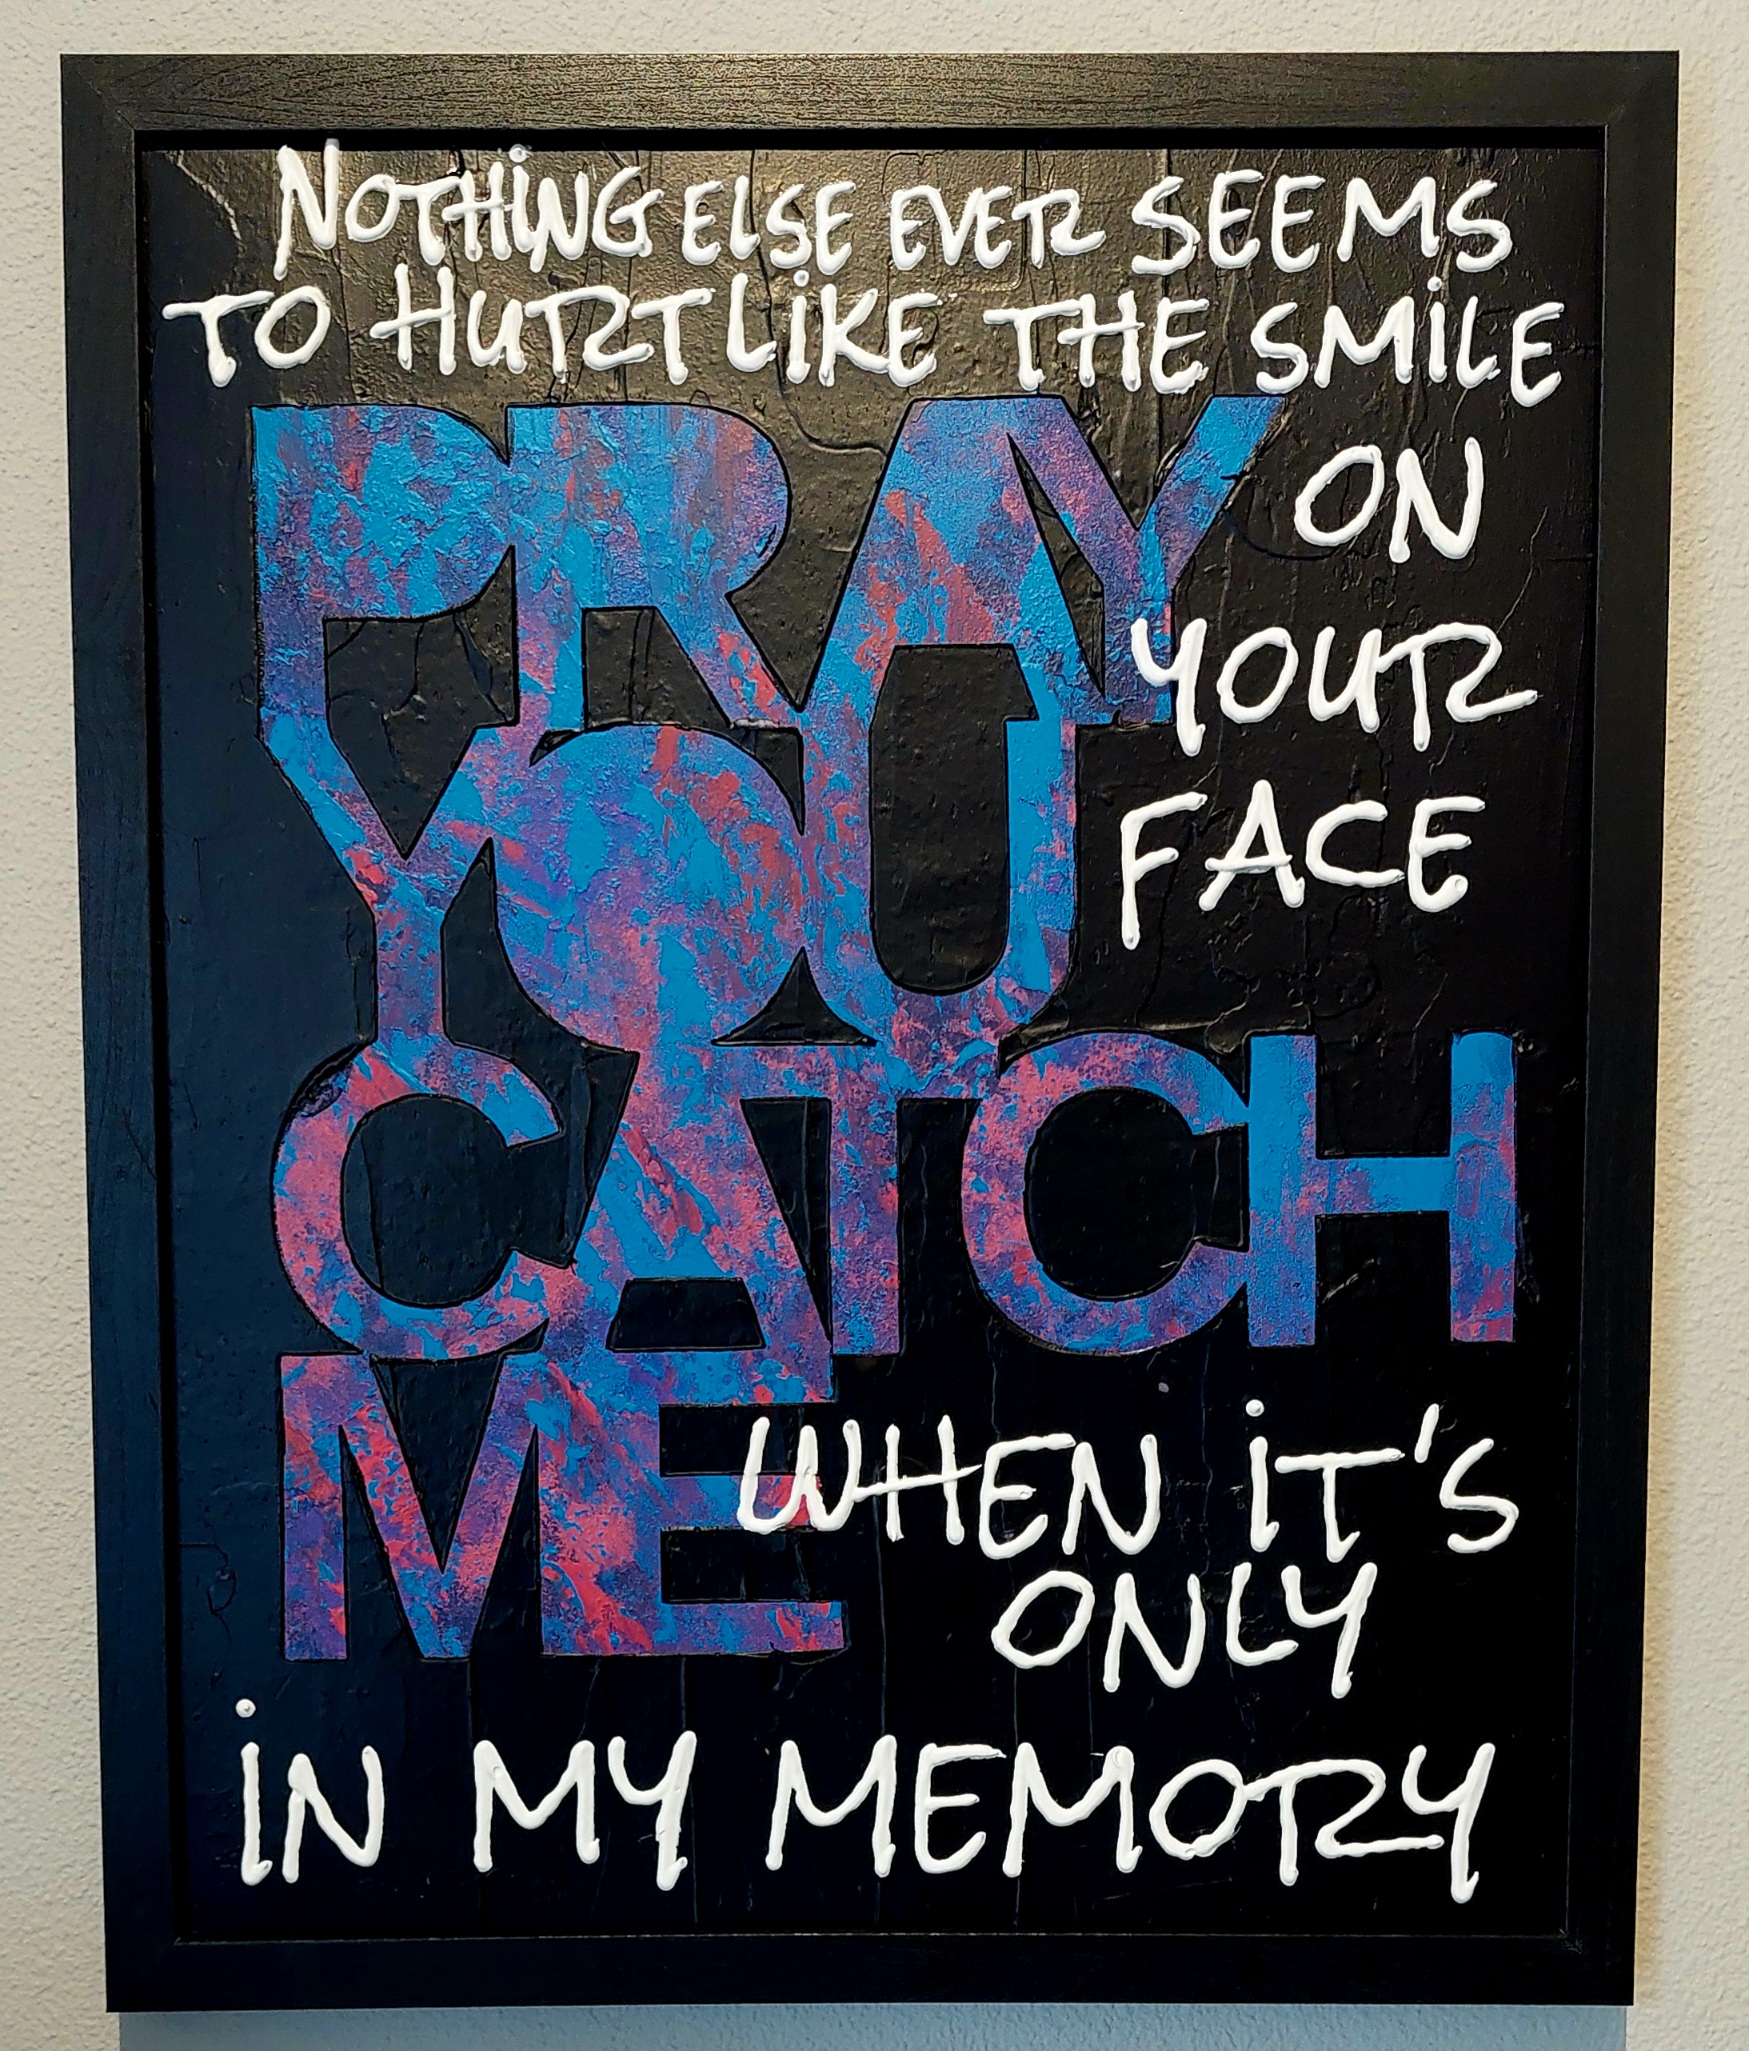 NOTHiNG ELSE EVER SEEMS
TO HURT LiKE THE SMiLE
ON
YOUR
FACE
PRAY
YOU
CATCH
ME
WHEN iT'S
ONLY
iN MY MEMORY